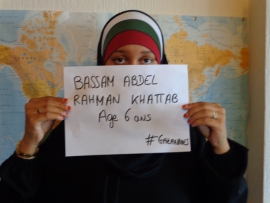 BASSAM ABDEL
RAHMAN KHATTAB
Age 6 ans
#GAZANAMES